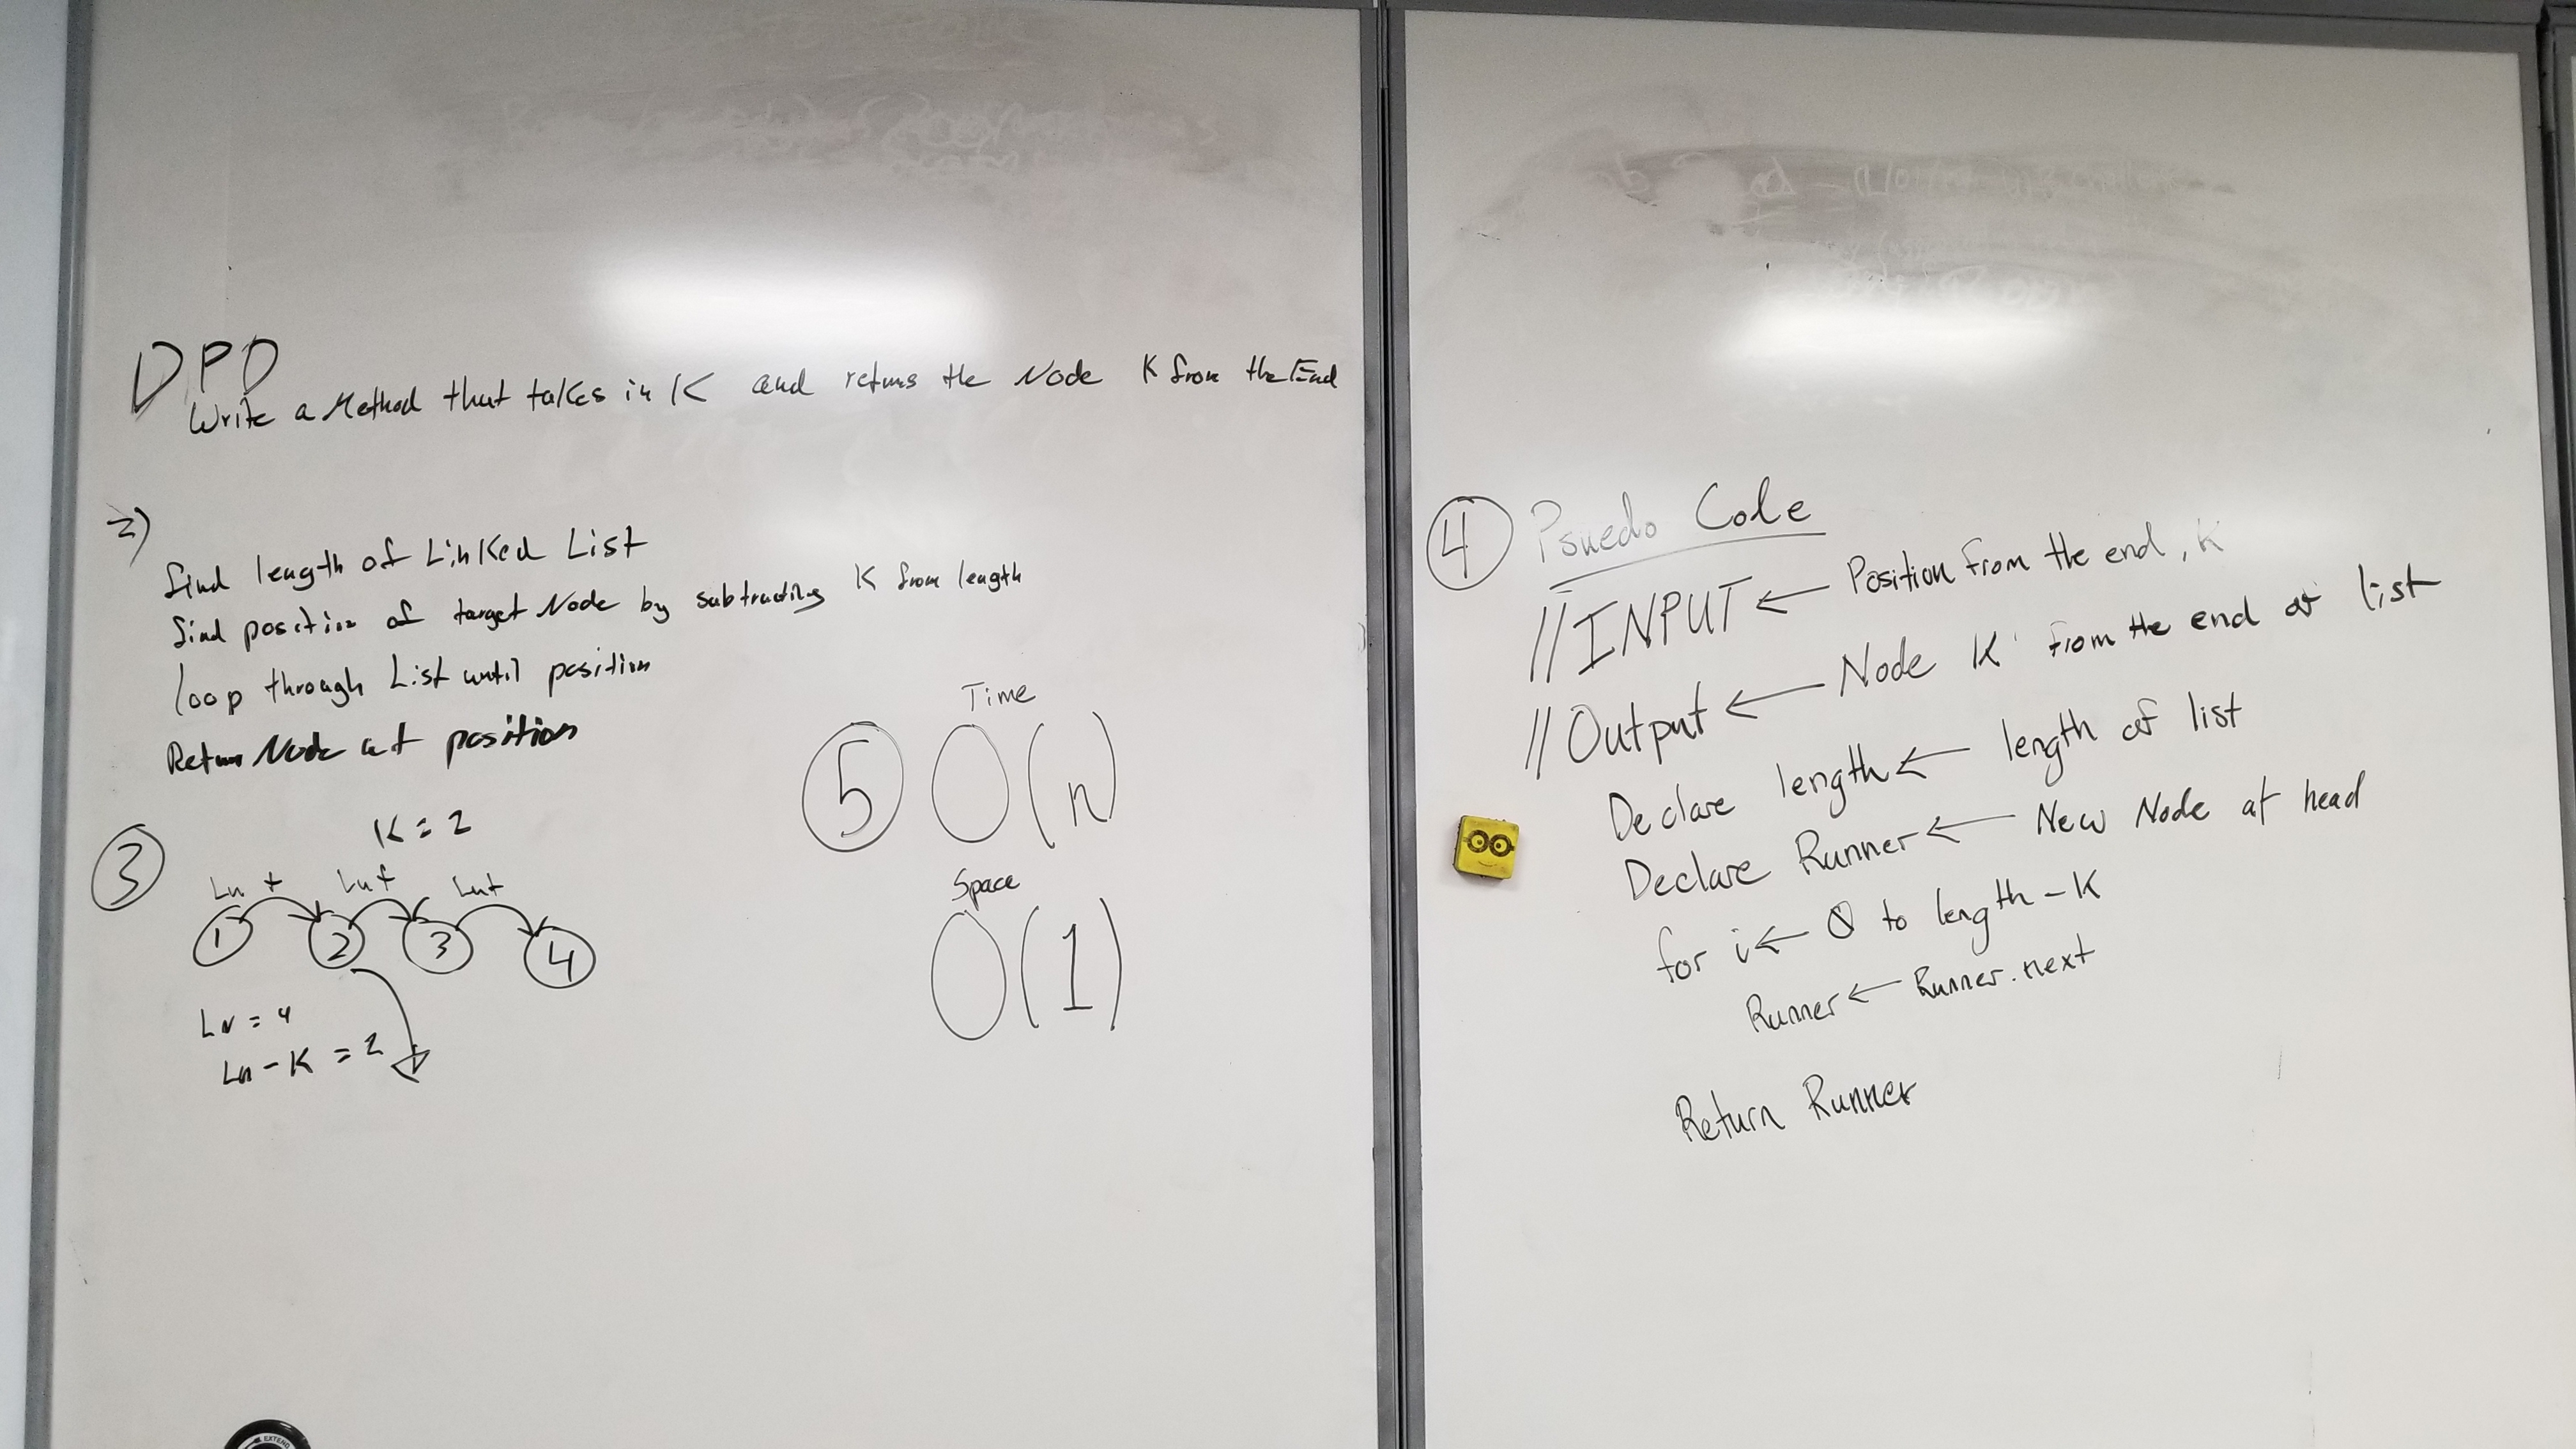 DPD
Write a Method that takes in K and returns the Node K from the End
2)
find length of Linked List
find position of target Node by subtracting K from length
loop through List until position
Return Node at position
3
K = 2
Ln + Ln + Ln+
1 2 3 4
Ln = 4
Ln - K = 2
5 Time
O(n)
Space
O(1)
4 Psuedo Code
//INPUT ← Position from the end, K
//Output ← Node K from the end of list
Declare length ← length of list
Declare Runner ← New Node at head
for i ← 0 to length - K
Runner ← Runner.next
Return Runner
EXTEND